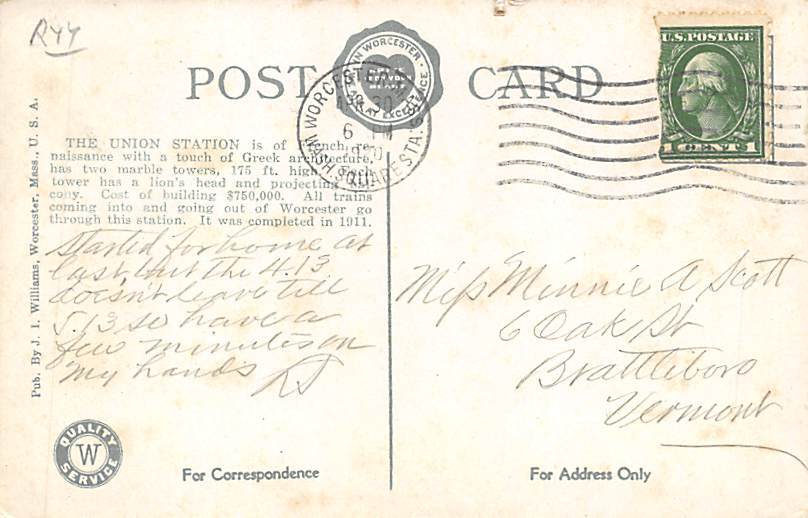 R44
POST CARD
WORCESTER
6 PM
WASH. SQUARE STA.
U.S. POSTAGE
1 CENTS 1
Pub. By J. I. Williams, Worcester, Mass., U. S. A.
THE UNION STATION is of French re-
naissance with a touch of Greek architecture,
has two marble towers, 175 ft. high
tower has a lion's head and projecting
cony. Cost of building $750,000. All trains
coming into and going out of Worcester go
through this station. It was completed in 1911.
Started for home at
last but the 4.13
doesn't leave till
5.13 so have a
few minutes on
my hands
Miss Minnie A Scott
6 Oak St
Brattleboro
Vermont
QUALITY
W
SERVICE
For Correspondence
For Address Only